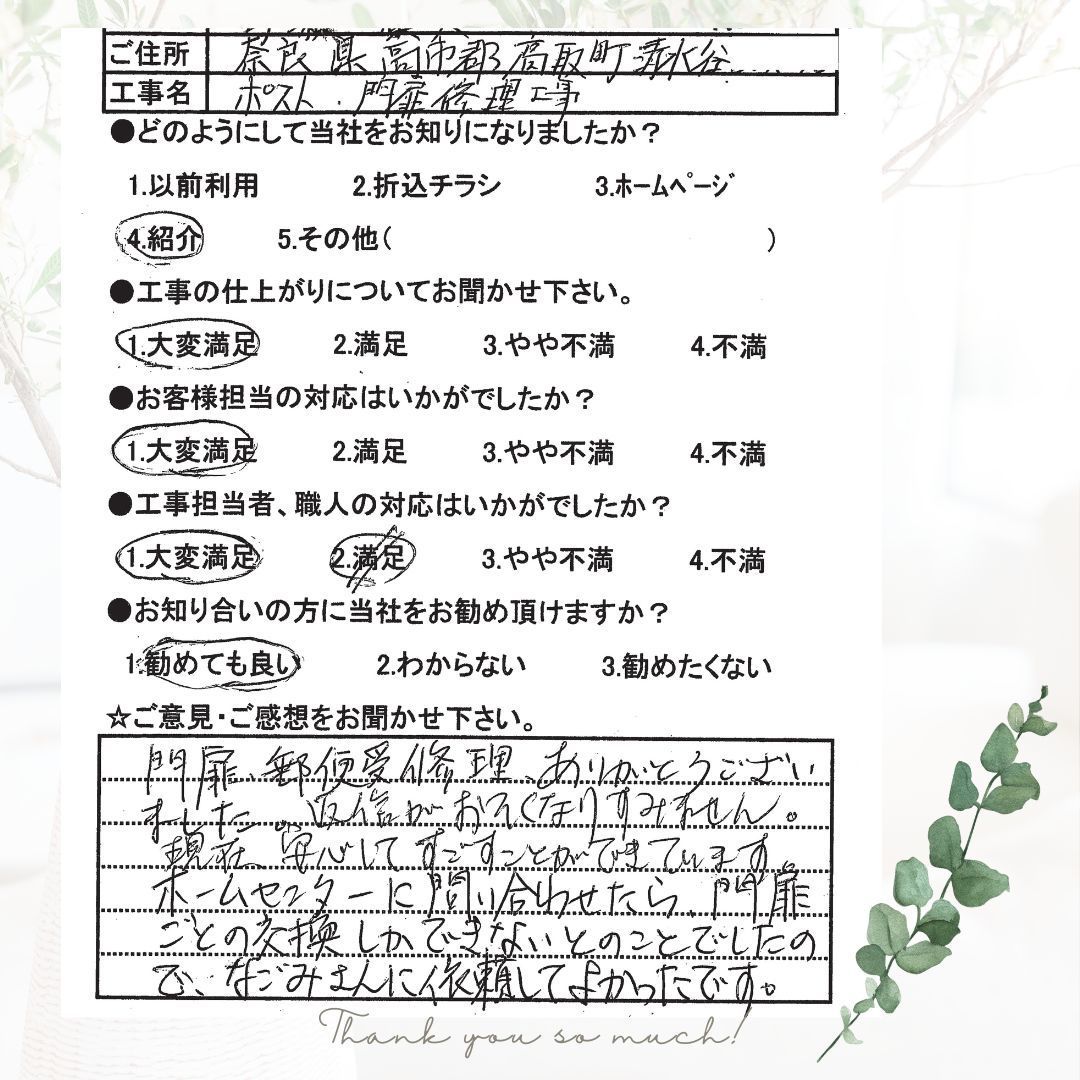 ご住所 奈良県高市郡高取町清水谷
工事名 ポスト．門扉修理工事
●どのようにして当社をお知りになりましたか？
1.以前利用 2.折込チラシ 3.ﾎｰﾑﾍﾟｰｼﾞ
4.紹介 5.その他( )
●工事の仕上がりについてお聞かせ下さい。
1.大変満足 2.満足 3.やや不満 4.不満
●お客様担当の対応はいかがでしたか？
1.大変満足 2.満足 3.やや不満 4.不満
●工事担当者、職人の対応はいかがでしたか？
1.大変満足 2.満足 3.やや不満 4.不満
●お知り合いの方に当社をお勧め頂けますか？
1.勧めても良い 2.わからない 3.勧めたくない
☆ご意見・ご感想をお聞かせ下さい。
門扉、郵便受修理、ありがとうござい
ました。返信がおそくなりすみません。
現在、安心してすごすことができています。
ホームセンターに問い合わせたら、門扉
ごとの交換しかできないとのことでしたの
で、なごみさんに依頼してよかったです。
Thank you so much!